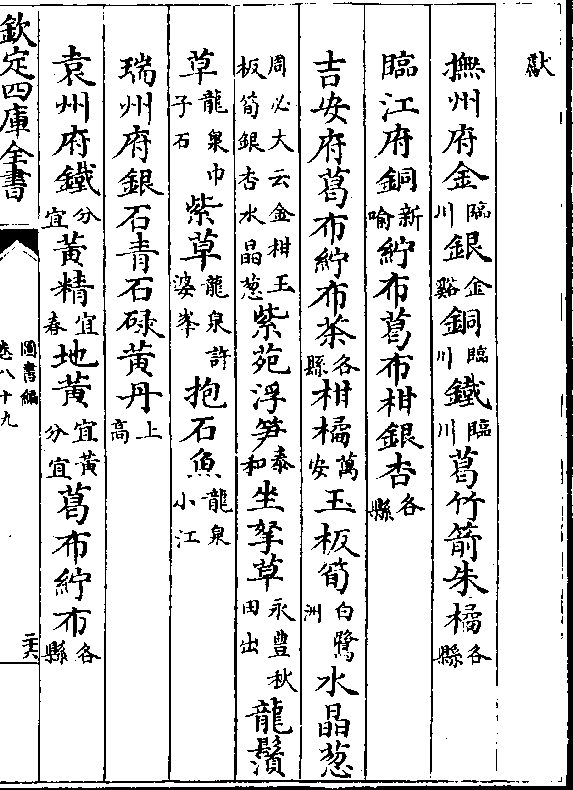 獻
撫州府金臨川銀金谿銅臨川鐵臨川葛竹箭朱橘各縣
臨江府銅新喻紵布葛布柑銀杏各縣
吉安府葛布紵布茶各縣柑橘萬安玉板筍白鷺洲水晶葱
周必大云金柑玉板筍銀杏水晶葱紫苑浮笋泰和坐拏草永豐秋田出龍鬚
草龍泉巾子石紫草龍泉許婆峯抱石魚龍泉小江
瑞州府銀石青石碌黃丹上高
袁州府鐵分宜黃精宜春地黃宜黃分宜葛布紵布各縣
欽定四庫全書
圖書編
卷八十九
二六